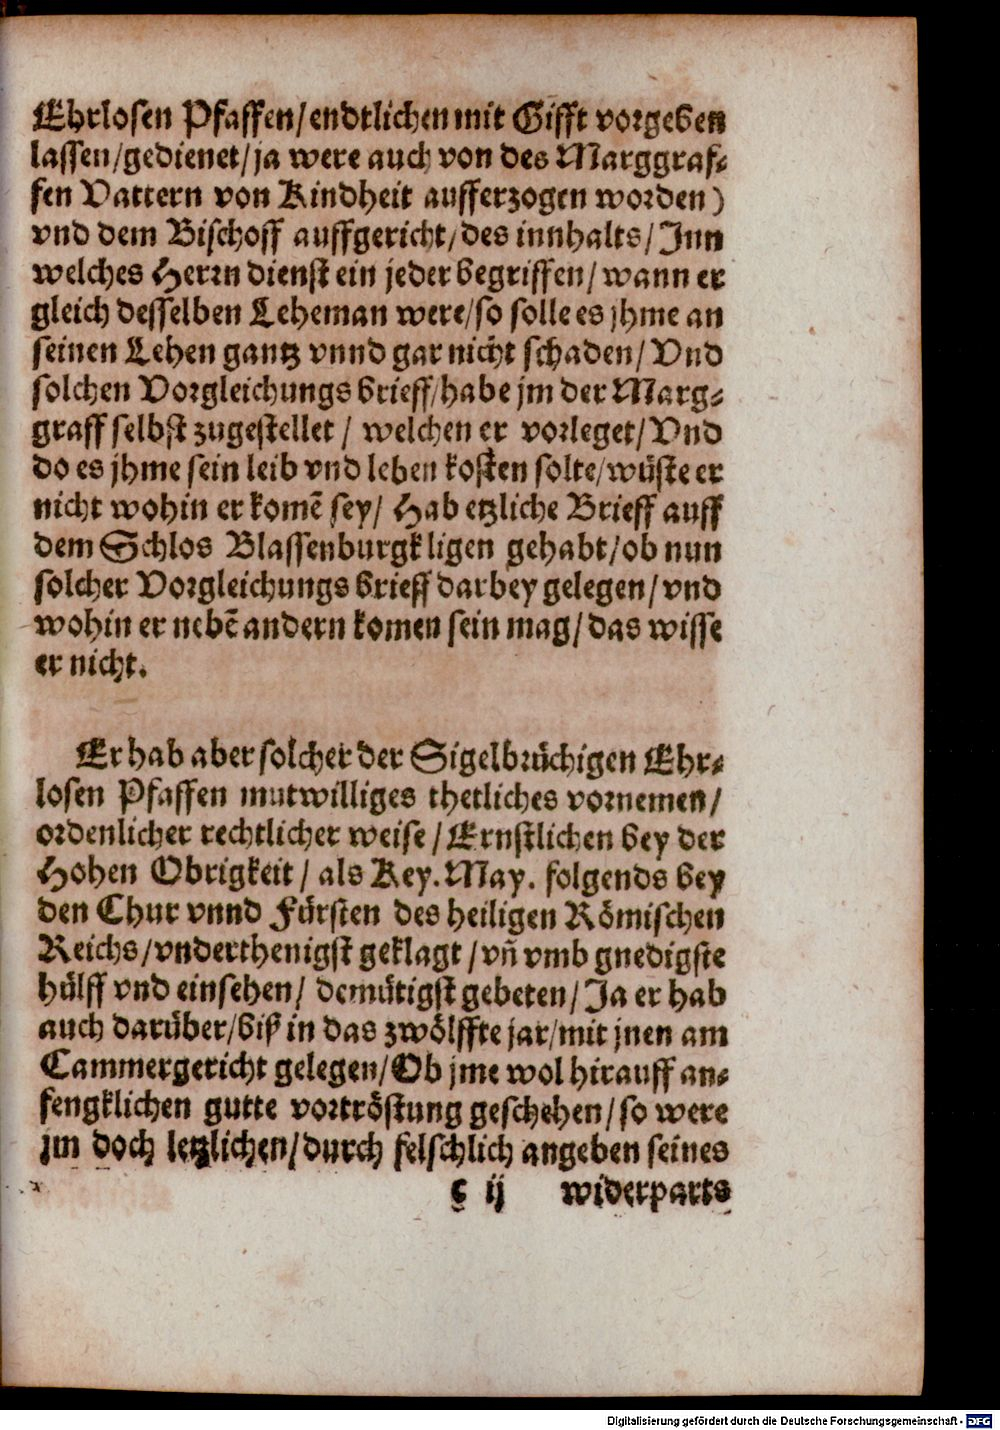 Ehrlosen Pfaffen/endtlichen mit Gifft vorgeben
lassen/gedienet/ja were auch von des Marggraf-
fen Vattern von Kindheit aufferzogen worden)
vnd dem Bischoff auffgericht/des innhalts/Jnn
welches Herrn dienst ein jeder begriffen/wann er
gleich desselben Leheman were/so solle es jhme an
seinen Lehen gantz vnnd gar nicht schaden/Vnd
solchen Vorgleichungs brieff/habe jm der Marg-
graff selbst zugestellet / welchen er vorleget/Vnd
do es jhme sein leib vnd leben kosten solte/wüste er
nicht wohin er komē sey/ Hab etzliche Brieff auff
dem Schlos Blassenburgk ligen gehabt/ob nun
solcher Vorgleichungs brieff darbey gelegen/vnd
wohin er nebē andern komen sein mag/das wisse
er nicht.
Er hab aber solcher der Sigelbrüchigen Ehr-
losen Pfaffen mutwilliges thetliches vornemen/
ordenlicher rechtlicher weise/Ernstlichen bey der
Hohen Obrigkeit/ als Key. May. folgends bey
den Chur vnnd Fürsten des heiligen Römischen
Reichs/vnderthenigst geklagt/vñ vmb gnedigste
hülff vnd einsehen/ demütigst gebeten/Ja er hab
auch darüber/biß in das zwölffte jar/mit jnen am
Cammergericht gelegen/Ob jme wol hirauff an-
fengklichen gutte vortröstung geschehen/so were
jm doch letzlichen/durch felschlich angeben seines
c ij widerparts
Digitalisierung gefördert durch die Deutsche Forschungsgemeinschaft - DFG